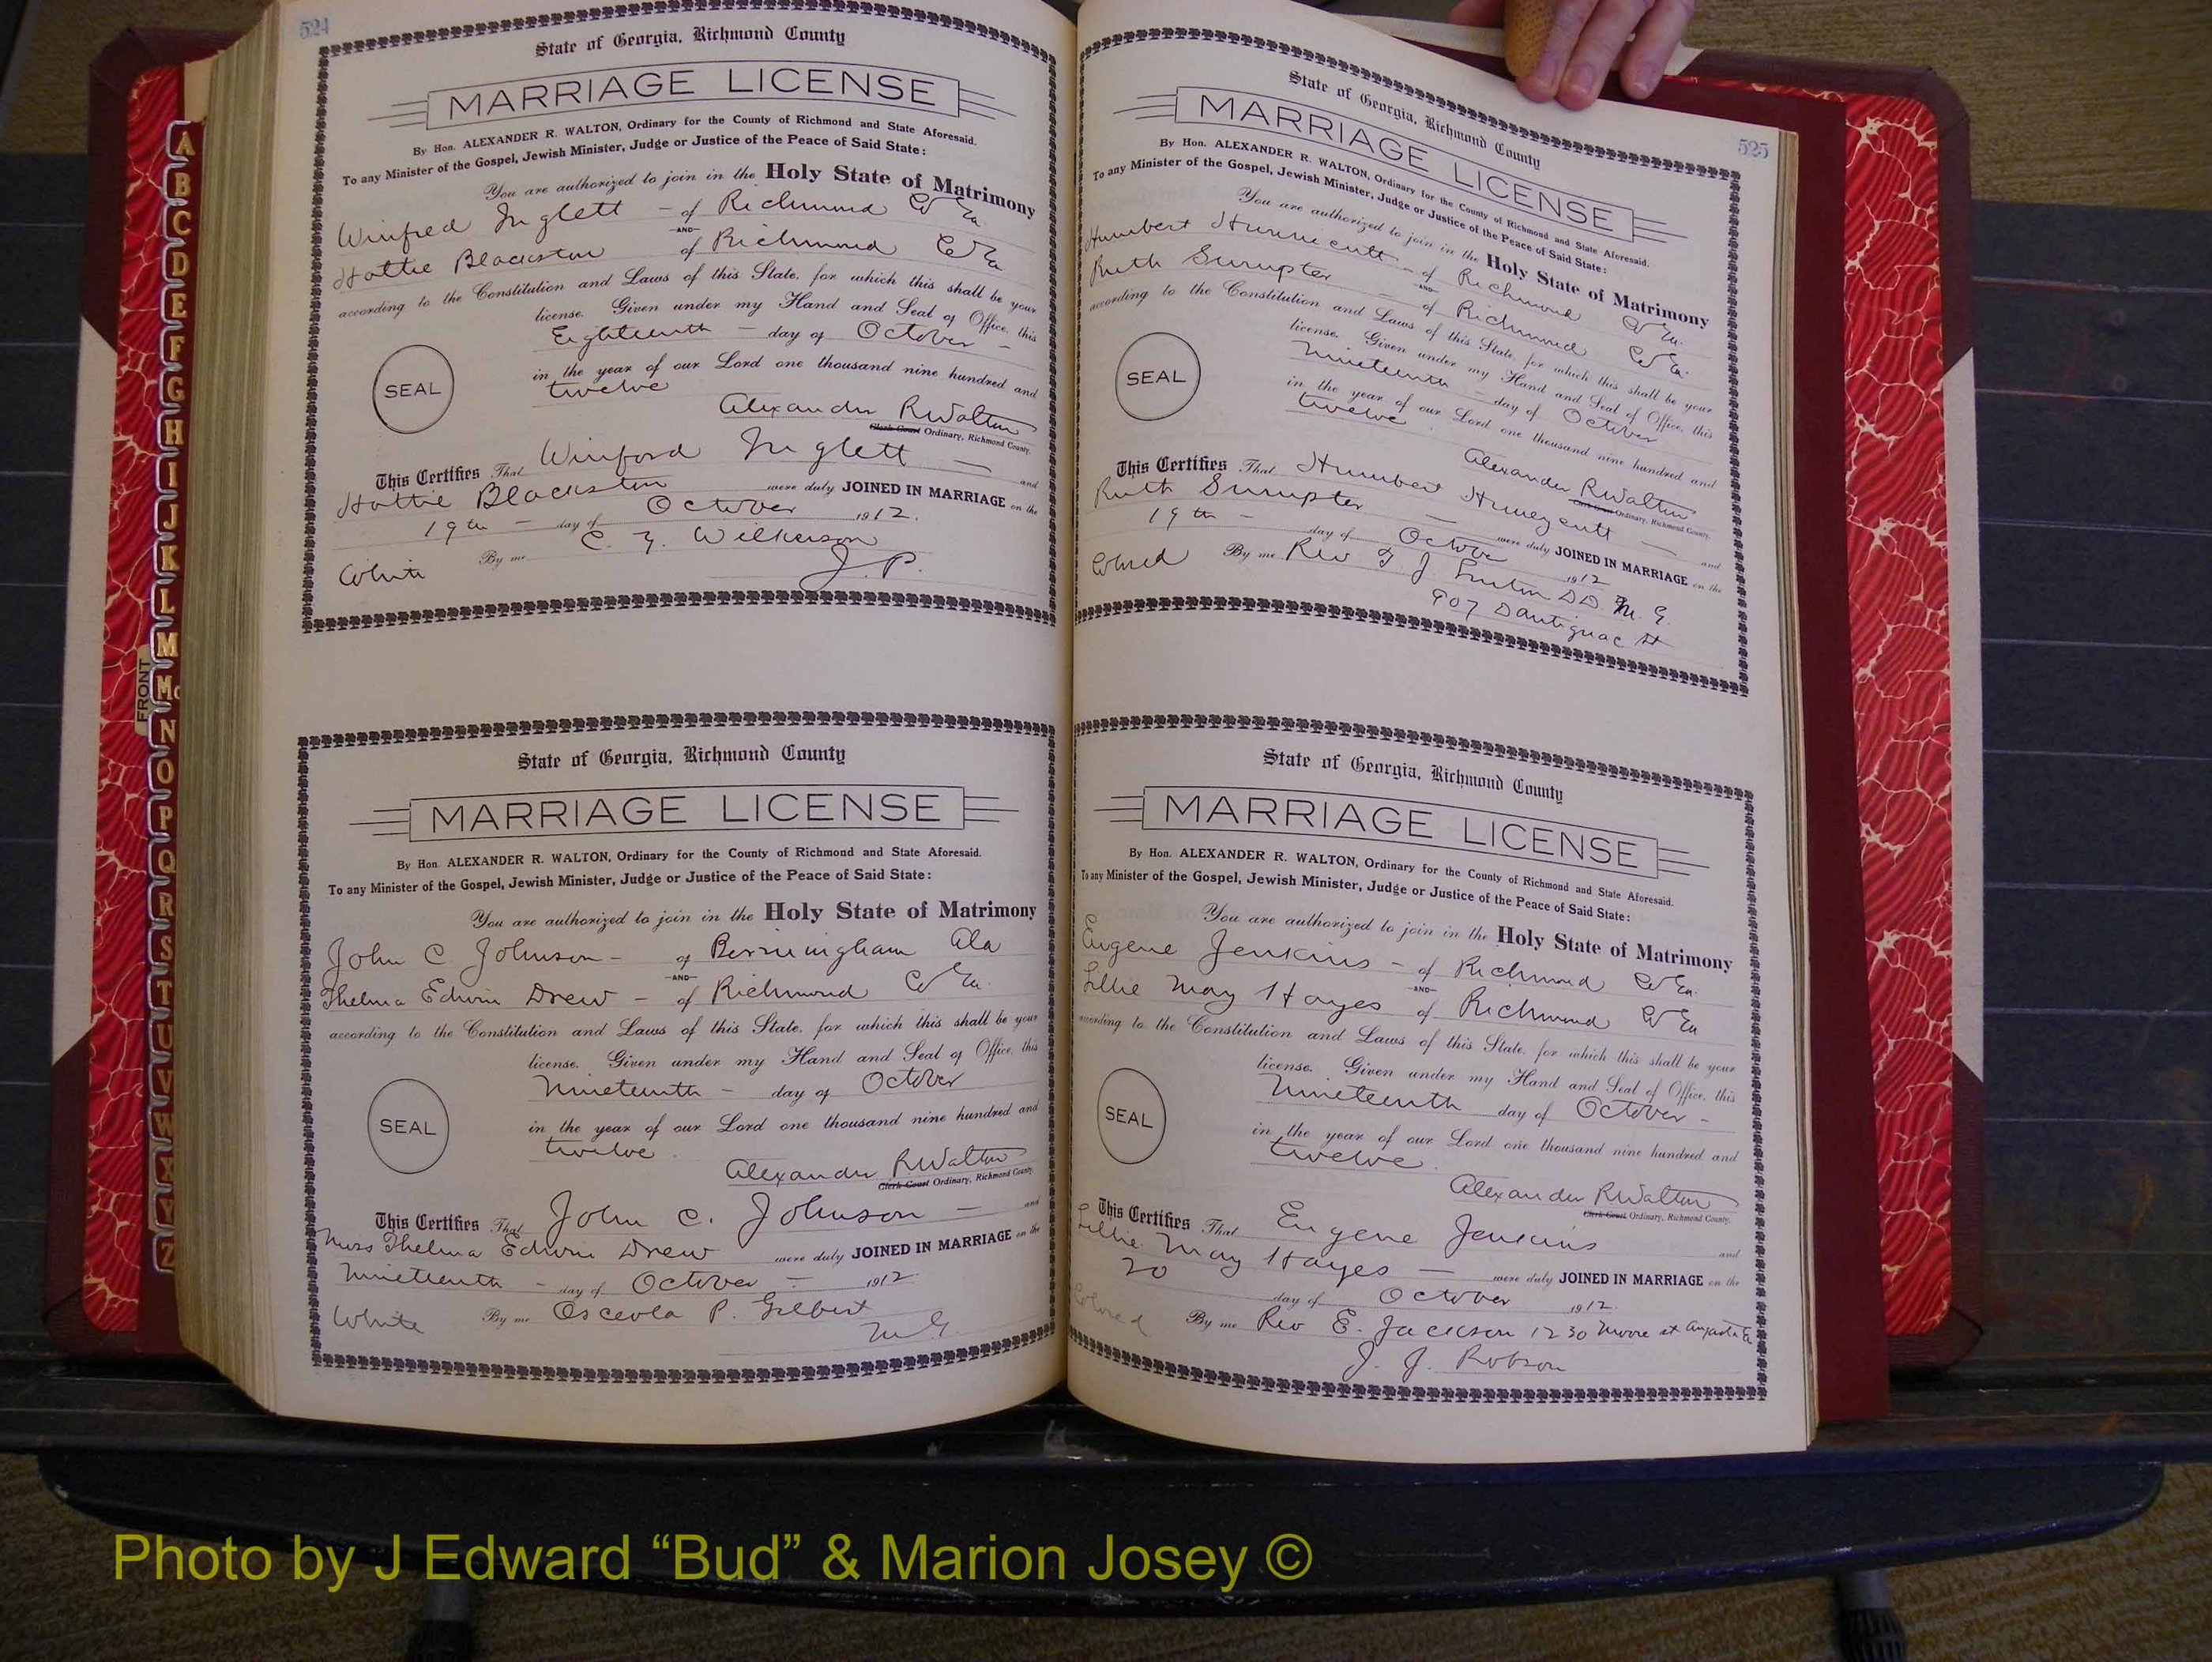 524
State of Georgia, Richmond County
MARRIAGE LICENSE
By Hon. ALEXANDER R. WALTON, Ordinary for the County of Richmond and State Aforesaid.
To any Minister of the Gospel, Jewish Minister, Judge or Justice of the Peace of Said State:
You are authorized to join in the Holy State of Matrimony
Winfred Inglett - of Richmond Co Ga.
-AND-
Hattie Blackston of Richmond Co Ga
according to the Constitution and Laws of this State, for which this shall be your
license. Given under my Hand and Seal of Office, this
Eighteenth - day of October -
in the year of our Lord one thousand nine hundred and
SEAL
twelve
Alexander R Walton
Clerk Court Ordinary, Richmond County.
This Certifies That Winford Inglett - and
Hattie Blackston were duly JOINED IN MARRIAGE on the
19th - day of October 1912.
By me C. Y. Wilkerson
White J. P.
State of Georgia, Richmond County
MARRIAGE LICENSE
By Hon. ALEXANDER R. WALTON, Ordinary for the County of Richmond and State Aforesaid.
To any Minister of the Gospel, Jewish Minister, Judge or Justice of the Peace of Said State:
You are authorized to join in the Holy State of Matrimony
John C. Johnson - of Birmingham Ala
-AND-
Thelma Edwin Drew - of Richmond Co Ga.
according to the Constitution and Laws of this State, for which this shall be your
license. Given under my Hand and Seal of Office, this
Nineteenth - day of October
in the year of our Lord one thousand nine hundred and
SEAL
twelve.
Alexander R Walton
Clerk Court Ordinary, Richmond County.
This Certifies That John C. Johnson - and
Miss Thelma Edwin Drew were duly JOINED IN MARRIAGE on the
Nineteenth - day of October - 1912
White By me Osceola P. Gilbert
M G.
525
State of Georgia, Richmond County
MARRIAGE LICENSE
By Hon. ALEXANDER R. WALTON, Ordinary for the County of Richmond and State Aforesaid.
To any Minister of the Gospel, Jewish Minister, Judge or Justice of the Peace of Said State:
You are authorized to join in the Holy State of Matrimony
Humbert Hunnicutt - of Richmond Co Ga.
-AND-
Ruth Sumpter of Richmond Co Ga.
according to the Constitution and Laws of this State, for which this shall be your
license. Given under my Hand and Seal of Office, this
Nineteenth - day of October
in the year of our Lord one thousand nine hundred and
SEAL
twelve.
Alexander R Walton
Clerk Court Ordinary, Richmond County.
This Certifies That Humbert - and
Ruth Sumpter - were duly JOINED IN MARRIAGE on the
19th - day of October 1912
Colored By me Rev J. DD. M. G.
907 Dantignac St
State of Georgia, Richmond County
MARRIAGE LICENSE
By Hon. ALEXANDER R. WALTON, Ordinary for the County of Richmond and State Aforesaid.
To any Minister of the Gospel, Jewish Minister, Judge or Justice of the Peace of Said State:
You are authorized to join in the Holy State of Matrimony
Eugene Jenkins - of Richmond Co Ga.
-AND-
Lillie May Hayes of Richmond Co Ga
according to the Constitution and Laws of this State, for which this shall be your
license. Given under my Hand and Seal of Office, this
Nineteenth day of October -
in the year of our Lord one thousand nine hundred and
SEAL
twelve.
Alexander R Walton
Clerk Court Ordinary, Richmond County.
This Certifies That Eugene Jenkins and
Lillie May Hayes - were duly JOINED IN MARRIAGE on the
20 day of October 1912.
Colored By me Rev E. Jackson 1230 Moore st Augusta Ga
J. J. Robson
A
B
C
D
E
F
G
H
I
J
K
L
M
Mc
N
O
P
Q
R
S
T
U
V
W
X
Y
Z
FRONT
Photo by J Edward “Bud” & Marion Josey ©